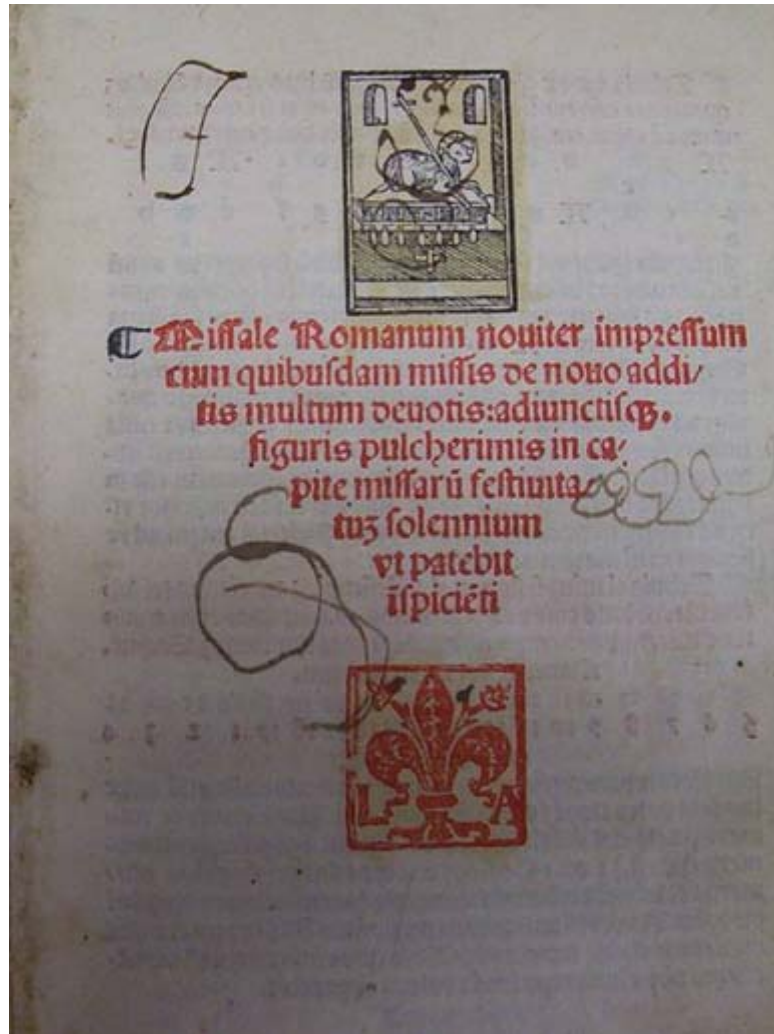 ¶ Missale Romanum noviter impressum
cum quibusdam missis de novo addi/
tis multum devotis:adiunctisqꝫ.
figuris pulcherimis in ca/
pite missarū festivita
tuꝫ solennium
vt patebit
īspiciēti
L A